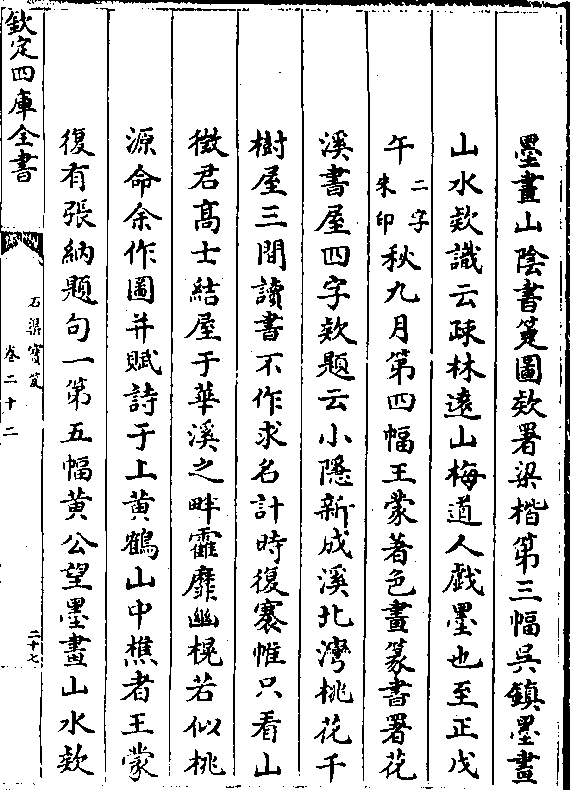 墨畫山陰書箑圖欵署梁楷第三幅吳鎮墨畫
山水欵識云疎林遠山梅道人戲墨也至正戊
午二字朱印秋九月第四幅王蒙著色畫篆書署花
溪書屋四字欵題云小隱新成溪北灣桃花千
樹屋三間讀書不作求名計時復褰帷只看山
徴君髙士結屋于華溪之畔靃靡幽榥若似桃
源命余作圖并賦詩于上黄鶴山中樵者王蒙
復有張納題句一第五幅黄公望墨畫山水欵
欽定四庫全書
石渠寳笈
卷二十二
二十七